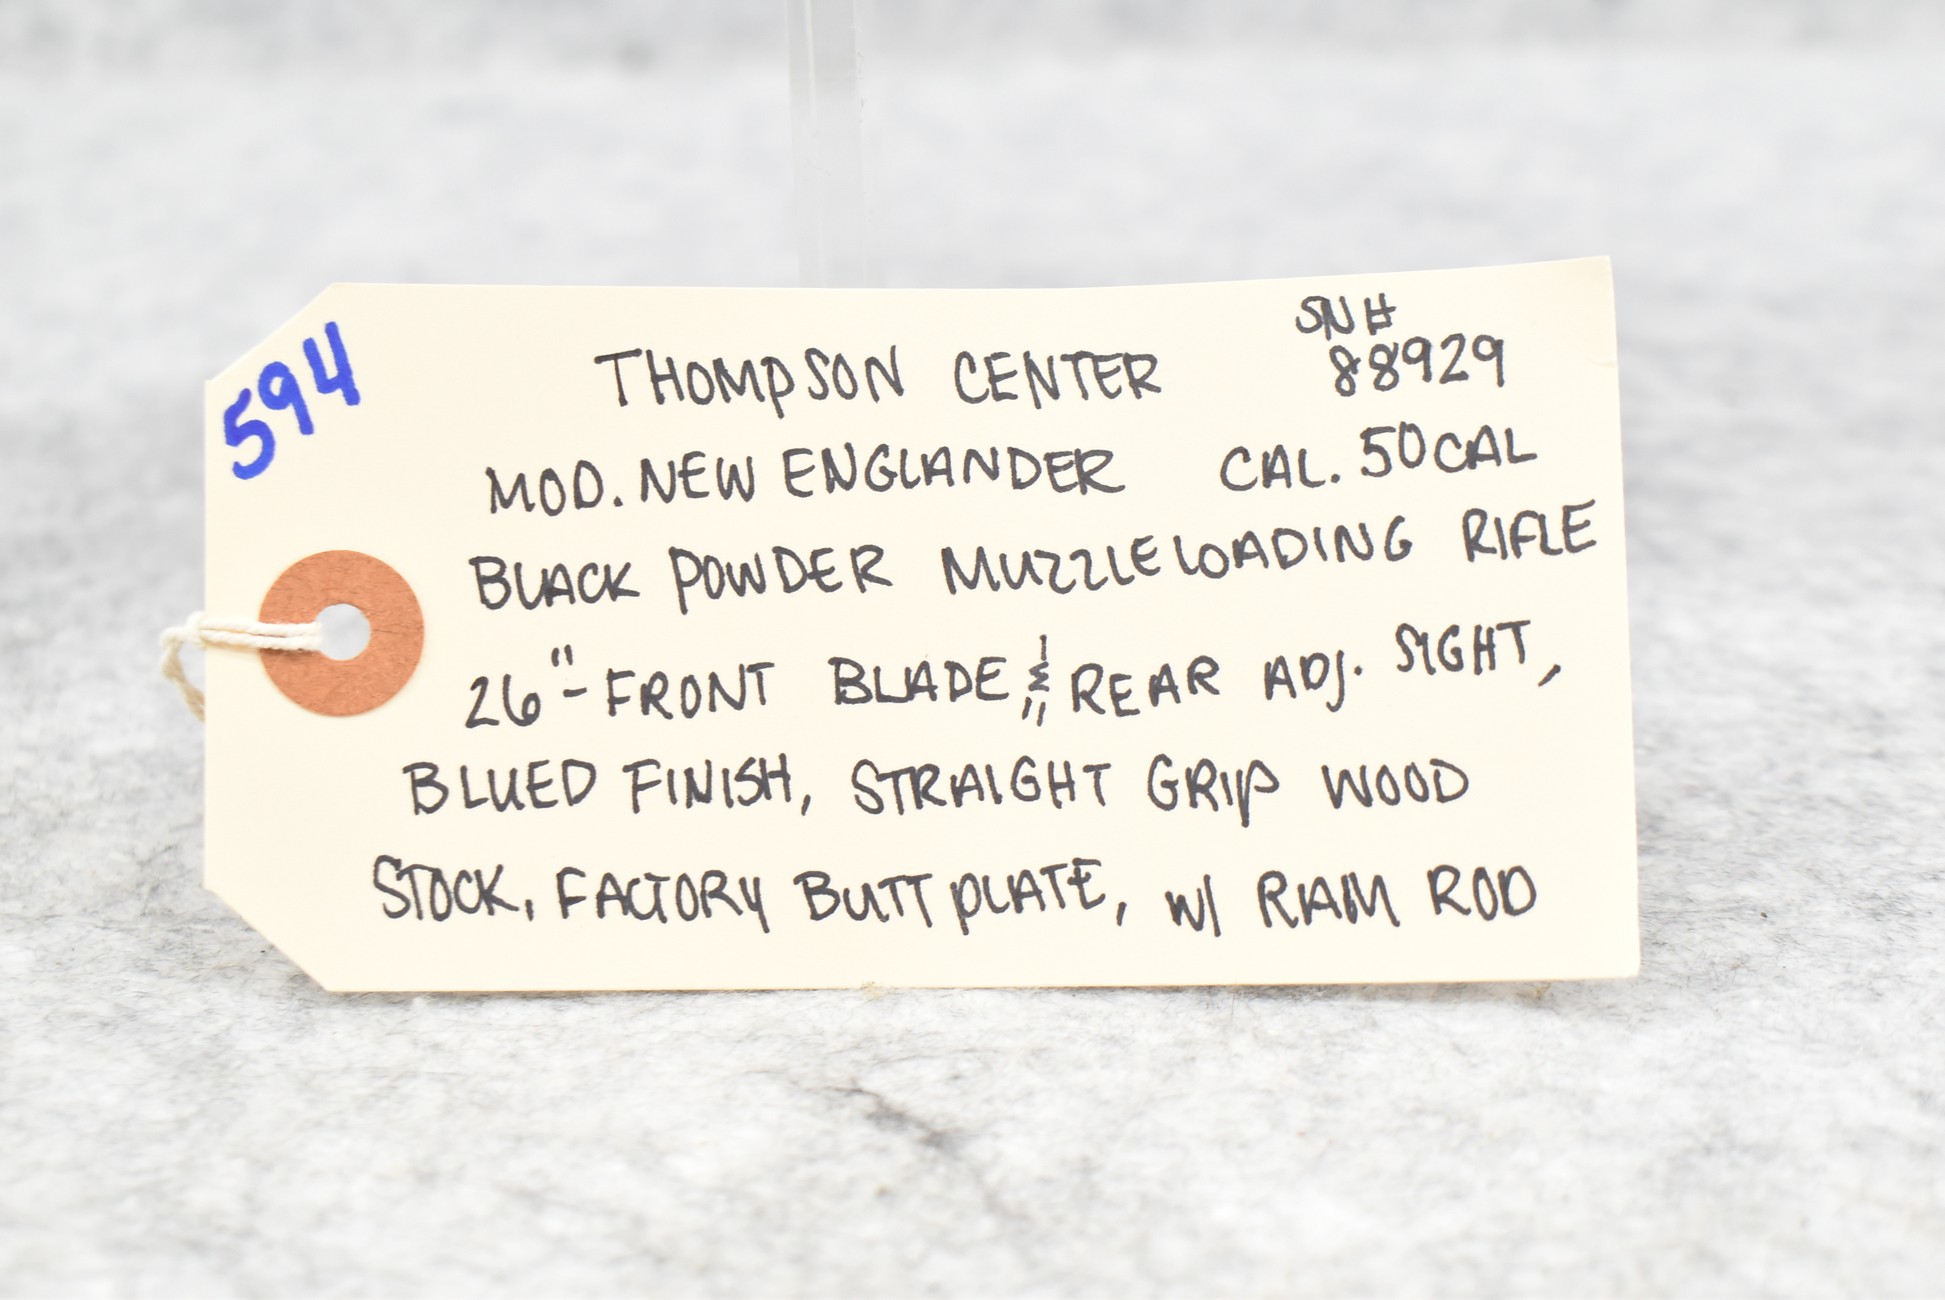 594
SN#
THOMPSON CENTER 88929
MOD. NEW ENGLANDER CAL. 50CAL
BLACK POWDER MUZZLELOADING RIFLE
26"-FRONT BLADE & REAR ADJ. SIGHT,
BLUED FINISH, STRAIGHT GRIP WOOD
STOCK, FACTORY BUTT PLATE, W/ RAM ROD